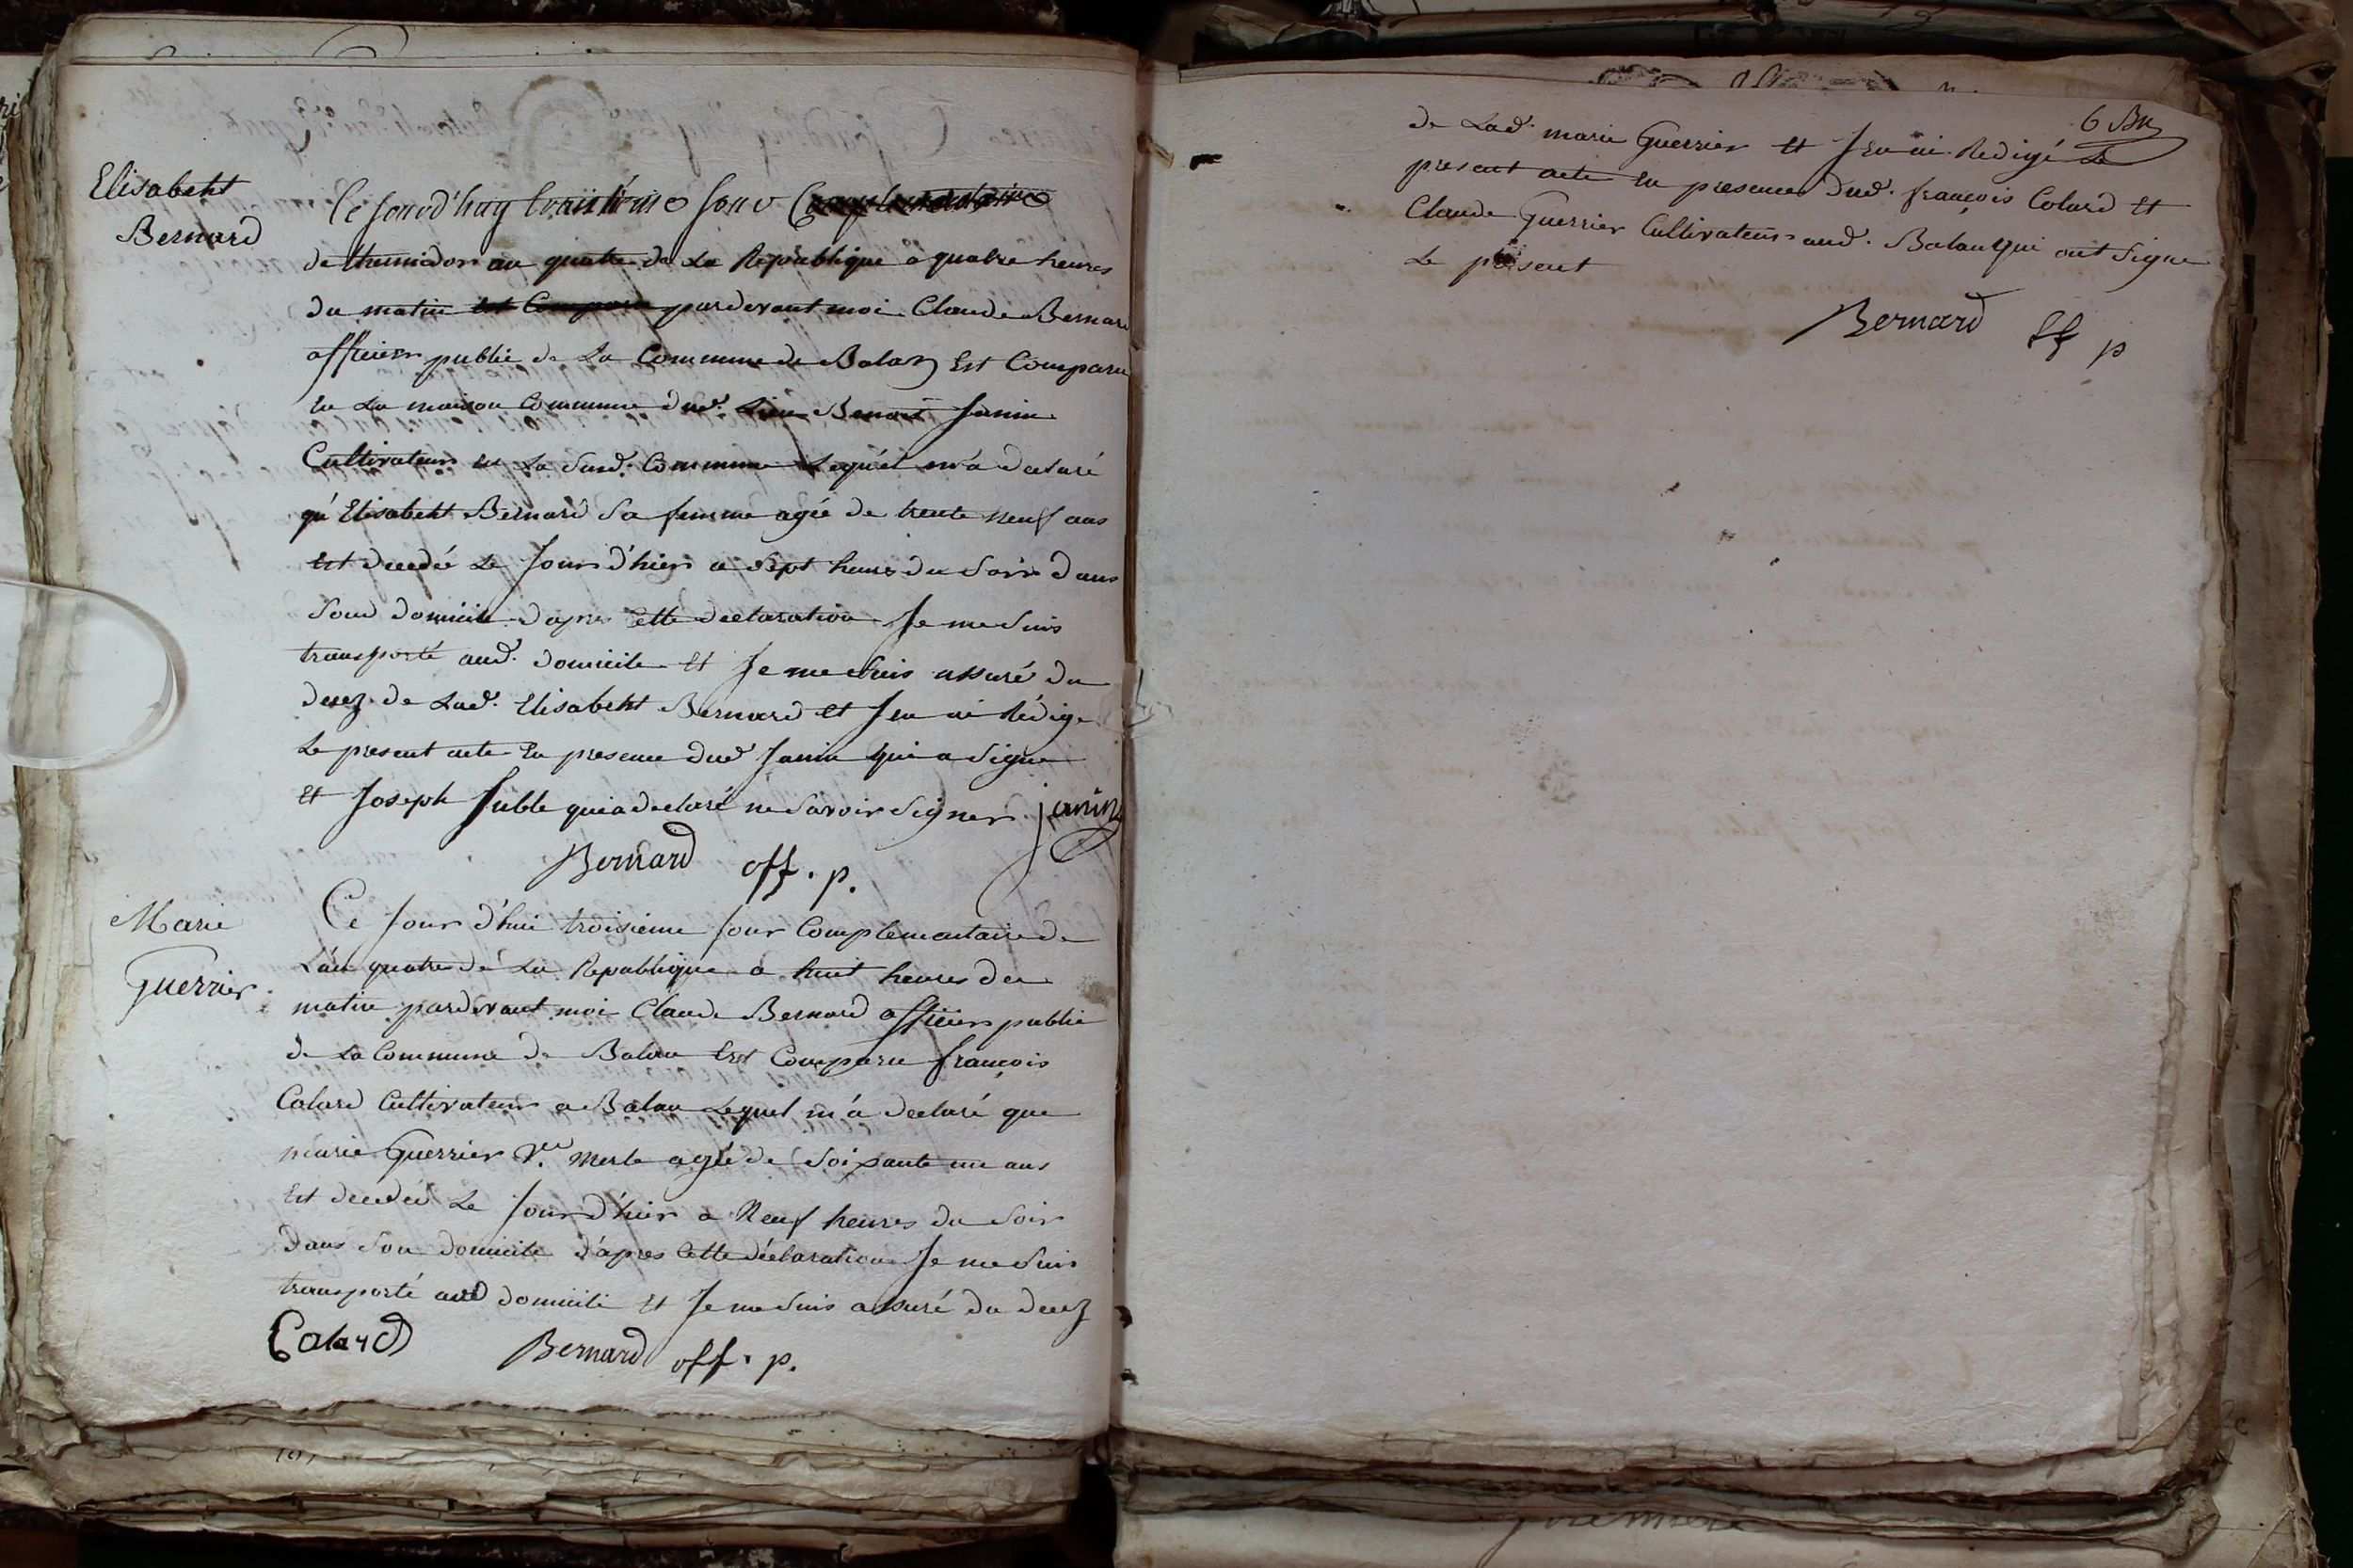 Elisabeht
Bernard
Ce Jourd'huy troisième Jour Complementaire
de thermidor an quatre de La Republique a quatre heures
du matin est Comparu pardevant moi Claude Bernard
officier public de La Commune de Balan Est Comparu
En La maison Commune dud. Lieu Benoit Janin
Cultivateur en La Susd. Commune Lequel m'a declaré
qu'Elisabeht Bernard Sa femme agée de trente neuf ans
Est decedé Le Jour d'hier a Sept heures du Soir dans
Sond domicile d'apres Cette declaration Je me Suis
transporté aud. domicile Et Je me Suis assuré du
decez de Lad. Elisabeht Bernard et J'en ai Rédigé
Le present acte En presence dud Janin qui a Signe
Et Joseph Juble qui a declaré ne Savoir Signer. janin
Bernard off. p.
Marie
Guerrier
Ce Jour d'hui troisieme Jour Complementaire de
L'an quatre de La Republique a huit heures du
matin pardevant moi Claude Bernard officier public
de La Commune de Balan Est Comparu françois
Colard Cultivateur a Balan Lequel m'a declaré que
marie Guerrier Ve. Merle agée de Soixante un ans
Est decedée Le Jour d'hier a Neuf heures du Soir
Dans Son domicile d'apres Cette déclaration Je me Suis
transporté aud domicile Et Je me Suis assuré du decez
Colard Bernard off. p.
6 Bn
de Lad. marie Guerrier Et J'en ai Redigé Le
present acte En presence dud. françois Colard Et
Claude Guerrier Cultivateurs aud. Balan qui ont Signe
Le présent
Bernard ff p